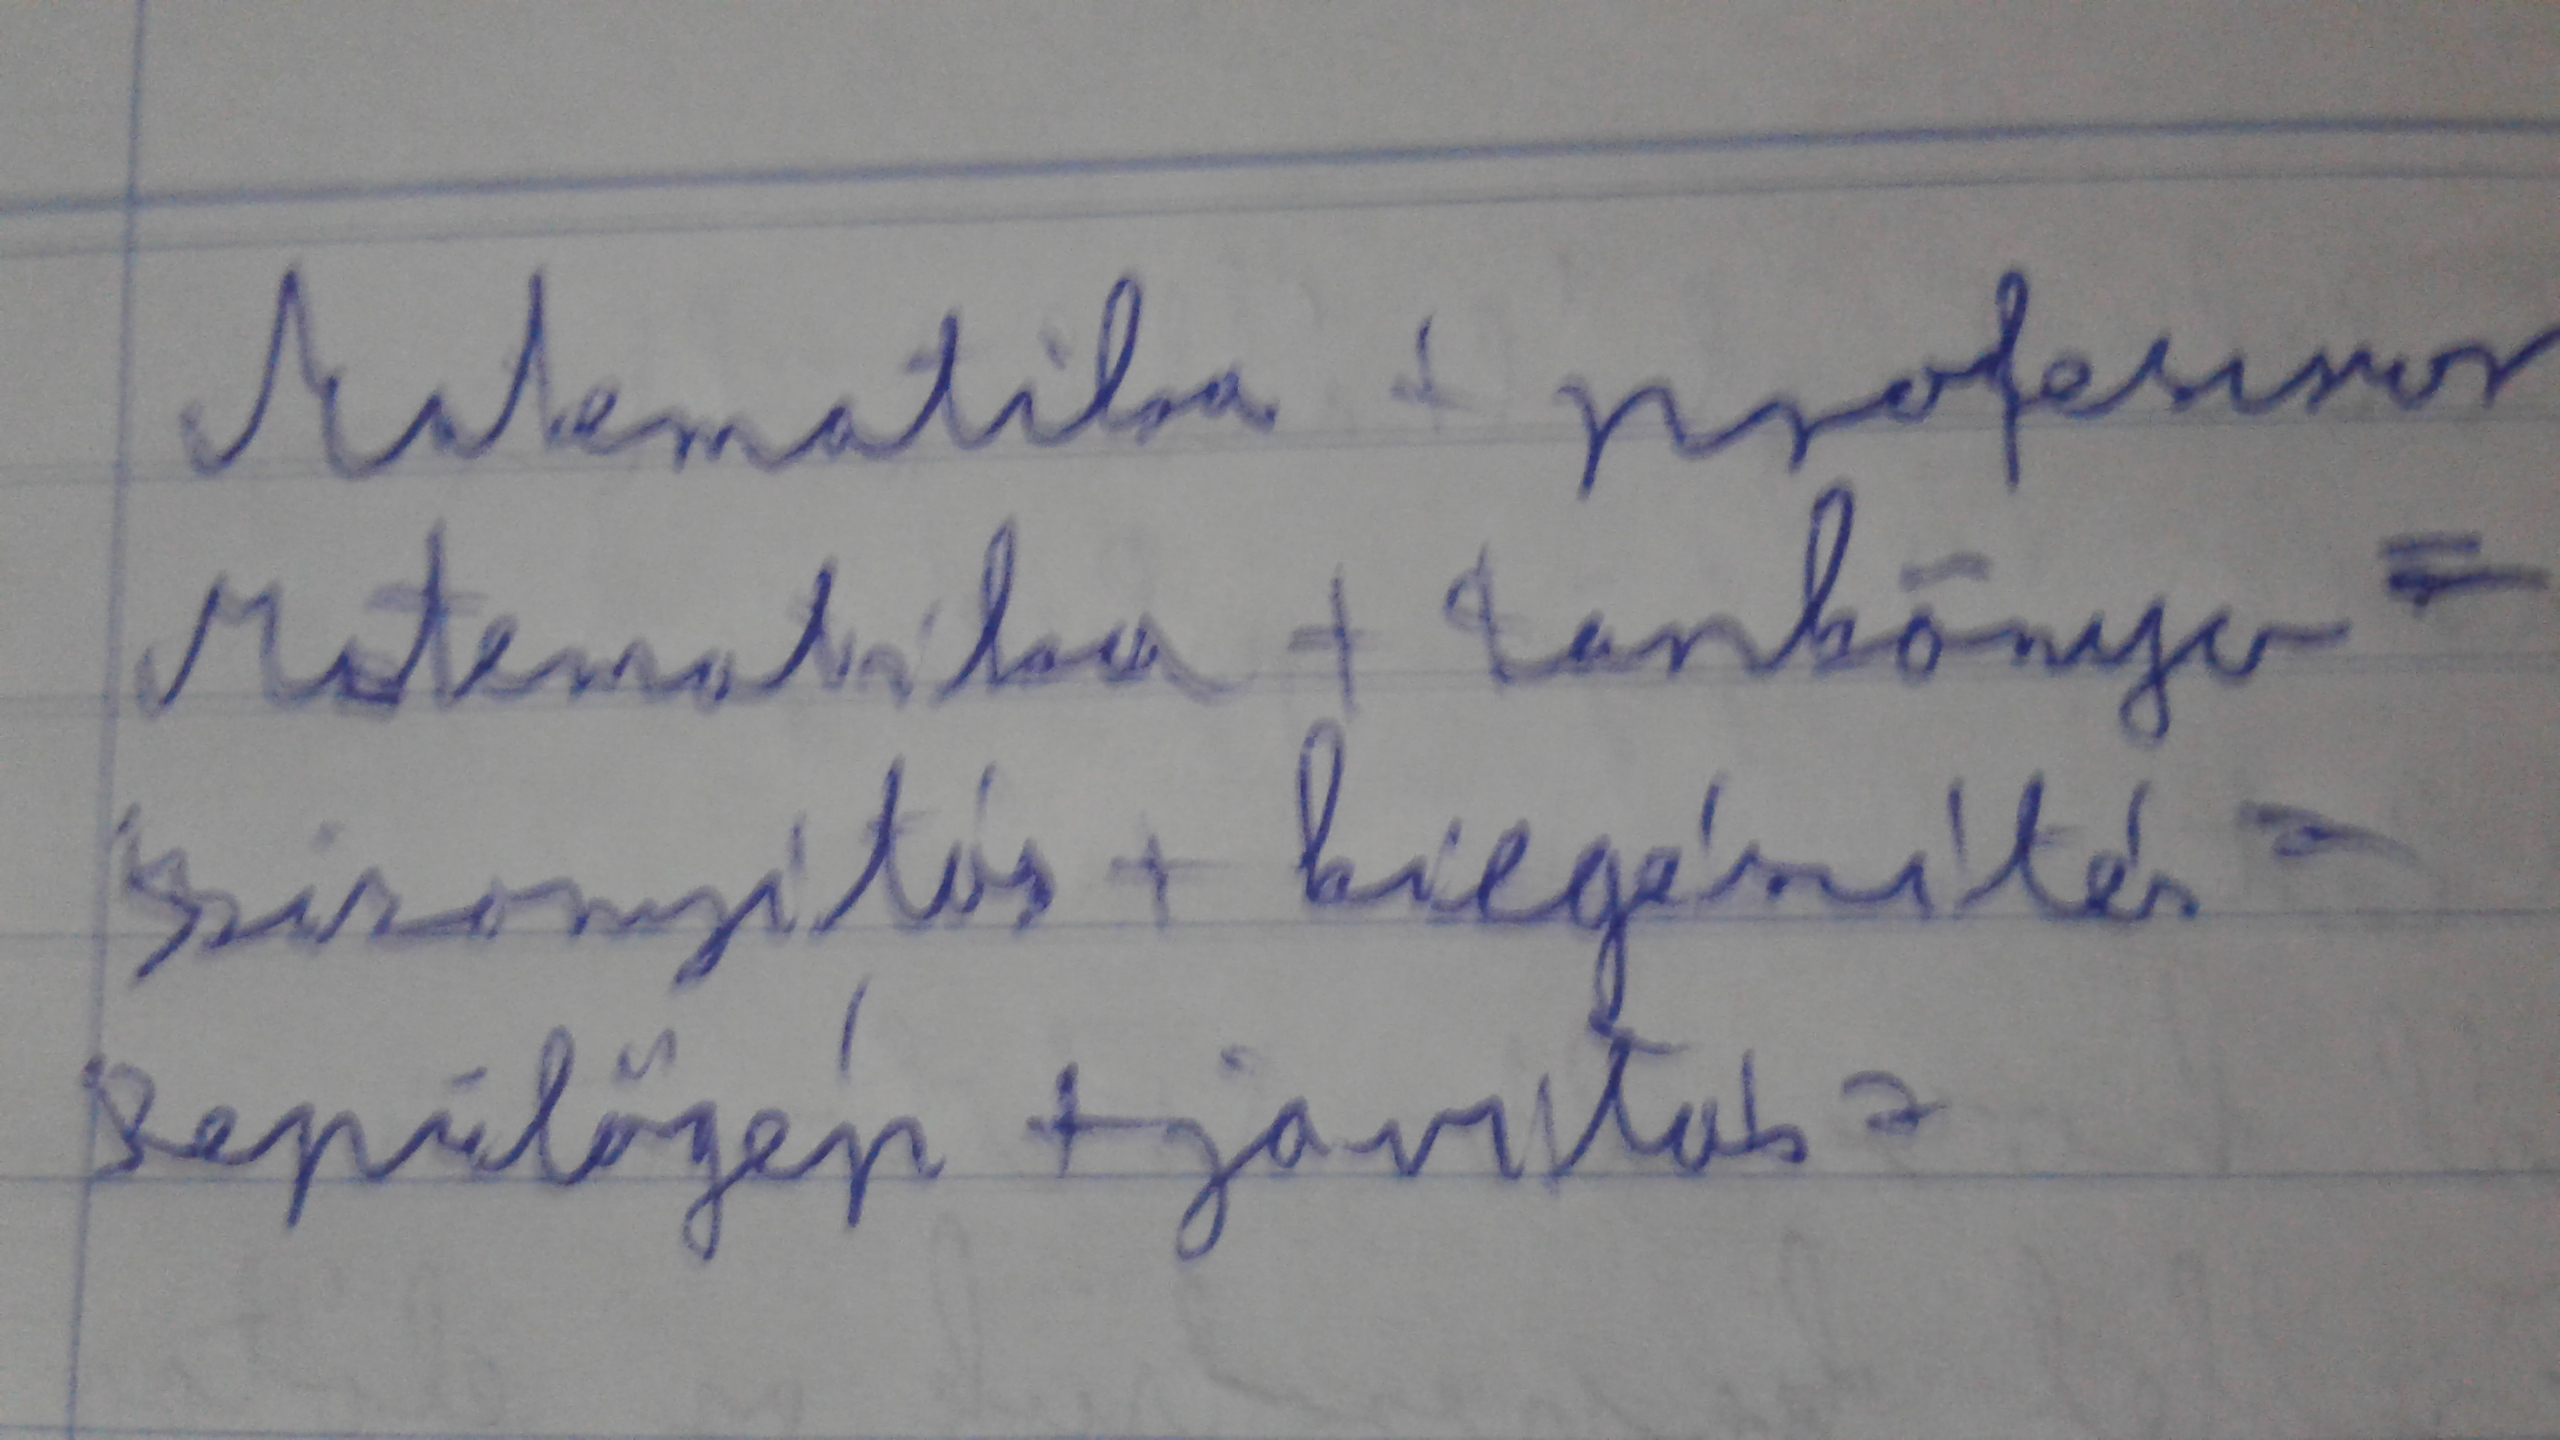 Matematika + professzor
Matematika + tankönyv =
Bizonyítás + kiegészítés =
Repülőgép + javítás =